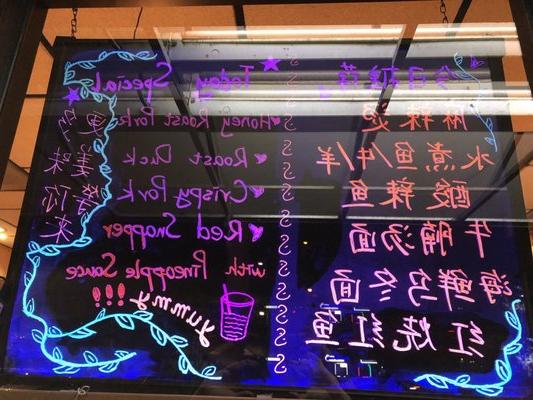 今日推荐
麻辣烫
水煮鱼/牛/羊
酸辣鱼
牛腩汤面
海鲜乌冬面
红烧鱼
Today Special
Honey Roast Pork
Roast Duck
Crispy Pork
Red Snapper
with Pineapple Sauce
yummy!!!
更多
美味
等你
来